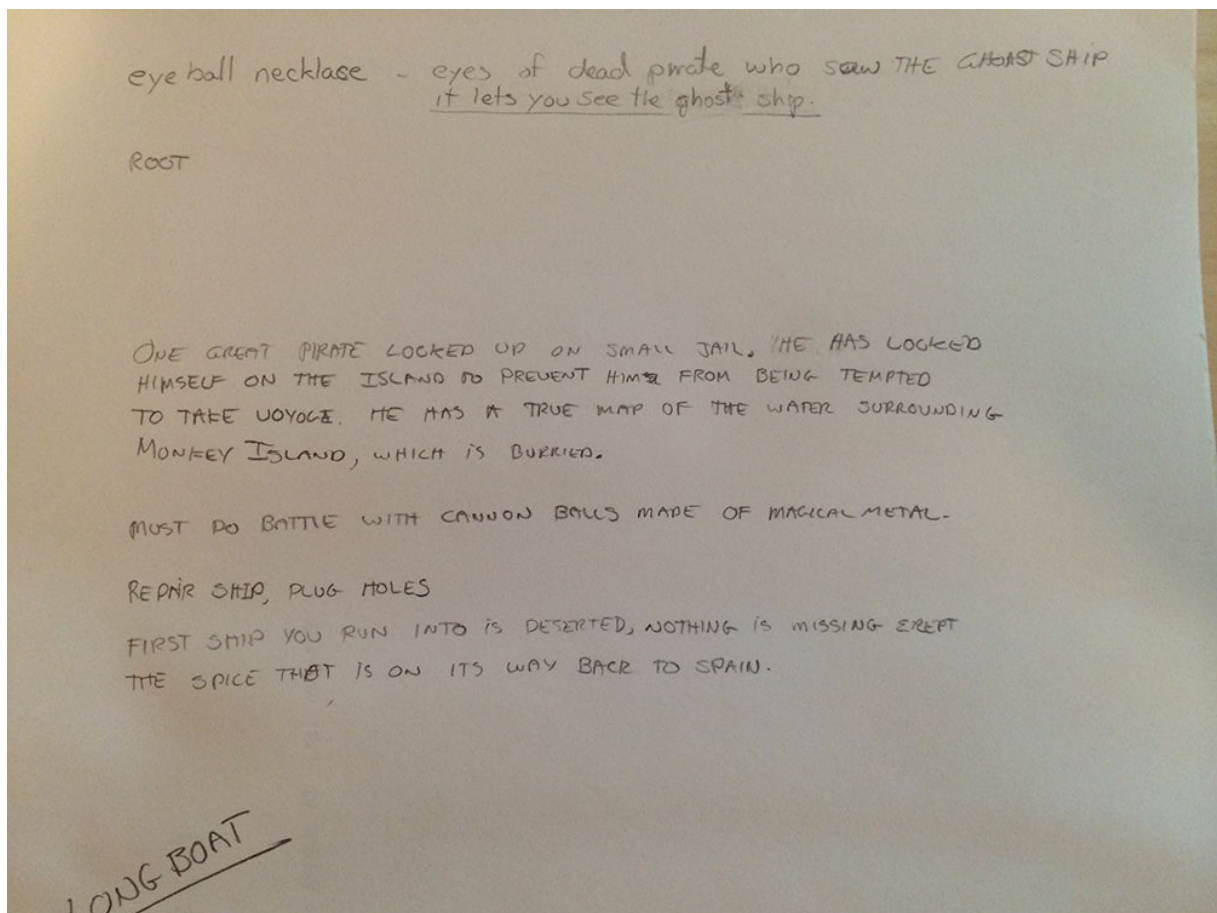 eyeball necklase - eyes of dead pirate who saw THE GHOAST SHIP
it lets you see the ghost ship.
ROOT
ONE GREAT PIRATE LOCKED UP ON SMALL JAIL. HE HAS LOCKED
HIMSELF ON THE ISLAND TO PREVENT HIM FROM BEING TEMPTED
TO TAKE VOYOGE. HE HAS A TRUE MAP OF THE WATER SURROUNDING
MONKEY ISLAND, WHICH IS BURRIED.
MUST DO BATTLE WITH CANNON BALLS MADE OF MAGICAL METAL.
REPAIR SHIP, PLUG HOLES
FIRST SHIP YOU RUN INTO IS DESERTED, NOTHING IS MISSING EXEPT
THE SPICE THAT IS ON ITS WAY BACK TO SPAIN.
LONG BOAT